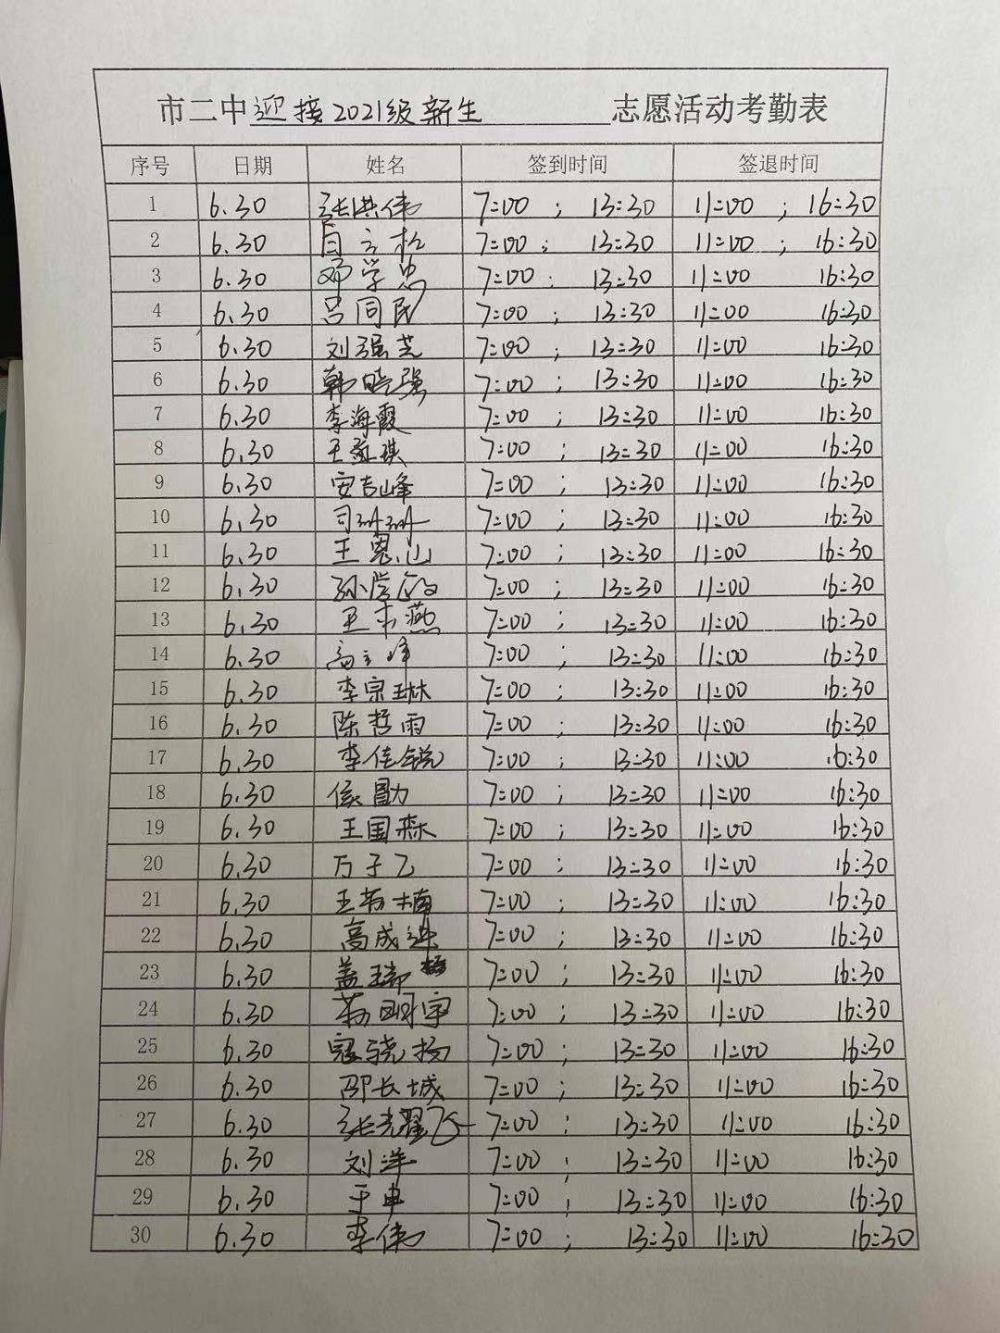 市二中迎接2021级新生 志愿活动考勤表
序号 日期 姓名 签到时间 签退时间
1 6.30 张洪伟 7:00 ; 13:30 11:00 ; 16:30
2 6.30 7:00 ; 13:30 11:00 ; 16:30
3 6.30 邓学忠 7:00 ; 13:30 11:00 16:30
4 6.30 吕同民 7:00 ; 13:30 11:00 16:30
5 6.30 刘强芝 7:00 ; 13:30 11:00 16:30
6 6.30 韩晓强 7:00 ; 13:30 11:00 16:30
7 6.30 李海霞 7:00 ; 13:30 11:00 16:30
8 6.30 7:00 ; 13:30 11:00 16:30
9 6.30 安吉峰 7:00 ; 13:30 11:00 16:30
10 6.30 司珊珊 7:00 ; 13:30 11:00 16:30
11 6.30 7:00 ; 13:30 11:00 16:30
12 6.30 7:00 ; 13:30 11:00 16:30
13 6.30 7:00 ; 13:30 11:00 16:30
14 6.30 高立峰 7:00 ; 13:30 11:00 16:30
15 6.30 李宗琳 7:00 ; 13:30 11:00 16:30
16 6.30 陈哲雨 7:00 ; 13:30 11:00 16:30
17 6.30 李佳锐 7:00 ; 13:30 11:00 16:30
18 6.30 侯勖 7:00 ; 13:30 11:00 16:30
19 6.30 王国森 7:00 ; 13:30 11:00 16:30
20 6.30 万子乙 7:00 ; 13:30 11:00 16:30
21 6.30 王若楠 7:00 ; 13:30 11:00 16:30
22 6.30 高成进 7:00 ; 13:30 11:00 16:30
23 6.30 盖瑞 7:00 ; 13:30 11:00 16:30
24 6.30 7:00 ; 13:30 11:00 16:30
25 6.30 寇骁扬 7:00 ; 13:30 11:00 16:30
26 6.30 邵长城 7:00 ; 13:30 11:00 16:30
27 6.30 张光耀 7:00 ; 13:30 11:00 16:30
28 6.30 刘洋 7:00 ; 13:30 11:00 16:30
29 6.30 于申 7:00 ; 13:30 11:00 16:30
30 6.30 李伟 7:00 ; 13:30 11:00 16:30